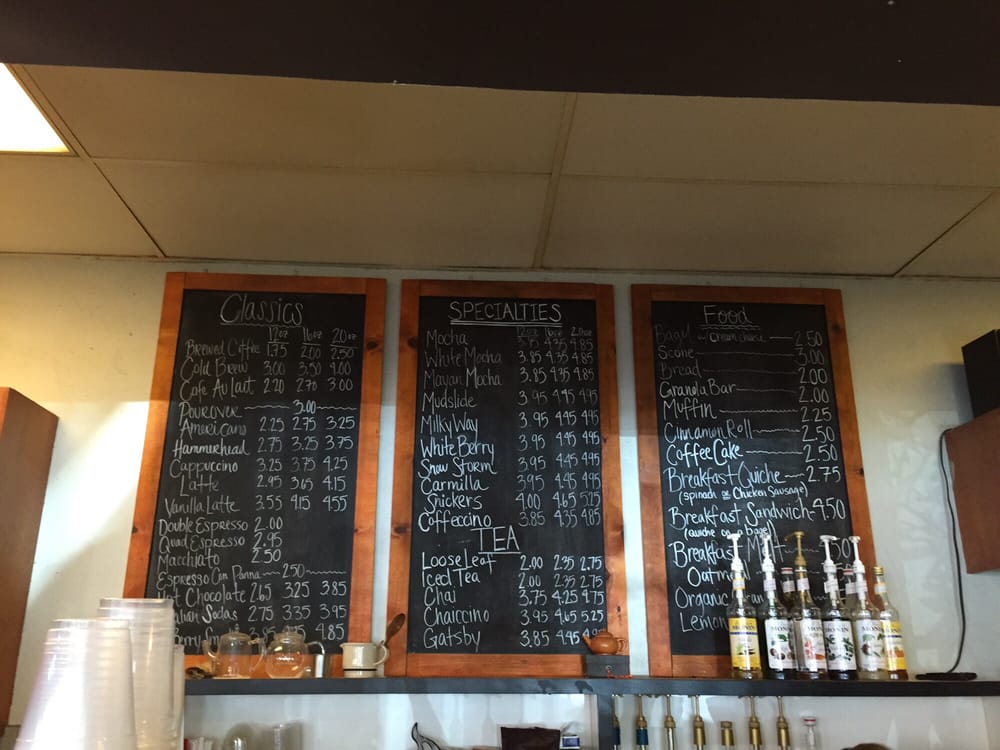 Classics
12oz 16oz 20oz
Brewed Coffee 1.75 2.00 2.50
Cold Brew 3.00 3.50 4.00
Cafe Au Lait 2.20 2.70 3.00
Pourover 3.00
Americano 2.25 2.75 3.25
Hammerhead 2.75 3.25 3.75
Cappuccino 3.25 3.75 4.25
Latte 2.95 3.65 4.15
Vanilla Latte 3.55 4.15 4.55
Double Espresso 2.00
Quad Espresso 2.95
Macchiato 2.50
Espresso Con Panna 2.50
Hot Chocolate 2.65 3.25 3.85
Italian Sodas 2.75 3.35 3.95
4.85
SPECIALTIES
12oz 16oz 20oz
Mocha 3.75 4.25 4.85
White Mocha 3.85 4.35 4.85
Mayan Mocha 3.85 4.35 4.85
Mudslide 3.95 4.45 4.95
Milky Way 3.95 4.45 4.95
White Berry 3.95 4.45 4.95
Snow Storm 3.95 4.45 4.95
Carmilla 3.95 4.45 4.95
Snickers 4.00 4.65 5.25
Coffeccino 3.85 4.35 4.85
TEA
Loose Leaf 2.00 2.35 2.75
Iced Tea 2.00 2.35 2.75
Chai 3.75 4.25 4.75
Chaiccino 3.95 4.65 5.25
Gatsby 3.85 4.45
Food
Bagel w/ cream cheese 2.50
Scone 3.00
Bread 2.00
Granola Bar 2.00
Muffin 2.25
Cinnamon Roll 2.50
Coffee Cake 2.50
Breakfast Quiche 2.75
(spinach or Chicken Sausage)
Breakfast Sandwich 4.50
(quiche on a bagel)
Breakfast
Oatm
Organic
Lemon
MONIN
MONIN
MONIN
MONIN